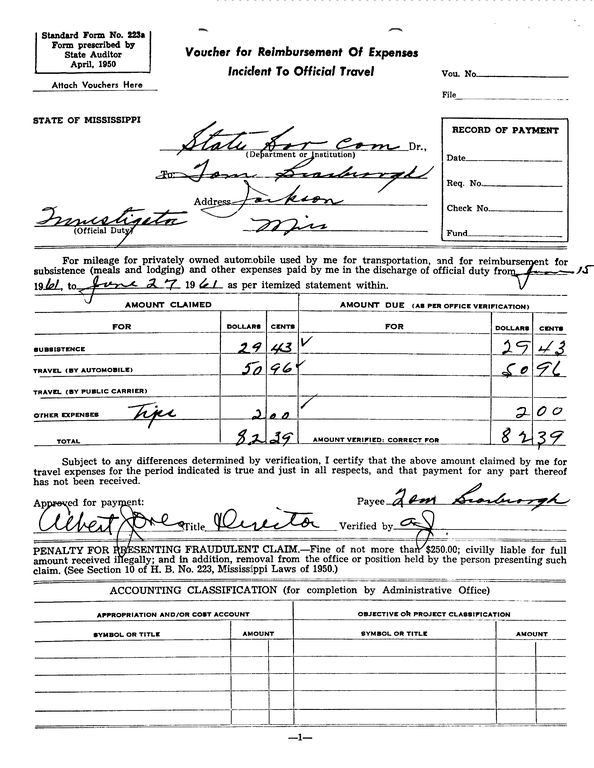 Standard Form No. 223a
Form prescribed by
State Auditor
April, 1950
Attach Vouchers Here
Voucher for Reimbursement Of Expenses
Incident To Official Travel
Vou. No.
File
STATE OF MISSISSIPPI
State Sov Com Dr.,
(Department or Institution)
To: Tom Scarbrough
Address Jackson
Investigator Miss
(Official Duty)
RECORD OF PAYMENT
Date
Req. No.
Check No.
Fund
For mileage for privately owned automobile used by me for transportation, and for reimbursement for
subsistence (meals and lodging) and other expenses paid by me in the discharge of official duty from June 15
1961, to June 27 1961 as per itemized statement within.
AMOUNT CLAIMED AMOUNT DUE (AS PER OFFICE VERIFICATION)
FOR DOLLARS CENTS FOR DOLLARS CENTS
SUBSISTENCE 29 43 ✓ 29 43
TRAVEL (BY AUTOMOBILE) 50 96 ✓ 50 96
TRAVEL (BY PUBLIC CARRIER)
OTHER EXPENSES Tips 2 00 ✓ 2 00
TOTAL 82 39 AMOUNT VERIFIED: CORRECT FOR 82 39
Subject to any differences determined by verification, I certify that the above amount claimed by me for
travel expenses for the period indicated is true and just in all respects, and that payment for any part thereof
has not been received.
Approved for payment: Payee Tom Scarbrough
Albert Jones Title Director Verified by aJ
PENALTY FOR PRESENTING FRAUDULENT CLAIM.—Fine of not more than $250.00; civilly liable for full
amount received illegally; and in addition, removal from the office or position held by the person presenting such
claim. (See Section 10 of H. B. No. 223, Mississippi Laws of 1950.)
ACCOUNTING CLASSIFICATION (for completion by Administrative Office)
APPROPRIATION AND/OR COST ACCOUNT OBJECTIVE OR PROJECT CLASSIFICATION
SYMBOL OR TITLE AMOUNT SYMBOL OR TITLE AMOUNT
—1—